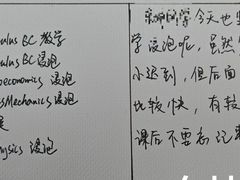 ulus BC 教学
ulus BC 浸泡
oeconomics 浸泡
sMechanics 浸泡
ysics 浸泡
今天也
学浸泡呢，虽然
小迟到，但后面
比较快，有较
课后不要忘记